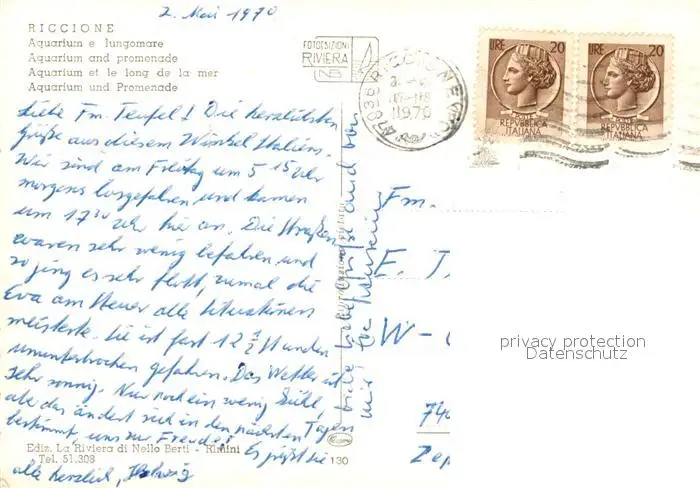 2. Mai 1970
RICCIONE
Aquarium e lungomare
Aquarium and promenade
Aquarium et le long de la mer
Aquarium und Promenade
FOTOEDIZIONI
RIVIERA
NB
RICCIONE
1970
LIRE 20
REPVBBLICA
ITALIANA
LIRE 20
REPVBBLICA
ITALIANA
Liebe Fm. Teufel! Die herzlichsten
Grüße aus diesem Winkel Italiens.
Wir sind am Freitag um 5 15 Uhr
morgens losgefahren und kamen
um 17 30 Uhr hier an. Die Straßen
waren sehr wenig befahren und
so ging es sehr flott, zumal die
Eva am Steuer alle Situationen
meisterte. Sie ist fast 12 1/2 Stunden
ununterbrochen gefahren. Das Wetter ist
sehr sonnig. Nur noch ein wenig kühl,
aber das ändert sich in den nächsten Tagen
bestimmt, uns zur Freude! Es grüßt sie
alle herzlich,
viele liebe Grüße auch von
Fm.
E. T
W-
740
Zep
privacy protection
Datenschutz
Ediz. La Riviera di Nello Berti - Rimini
Tel. 51.308
130